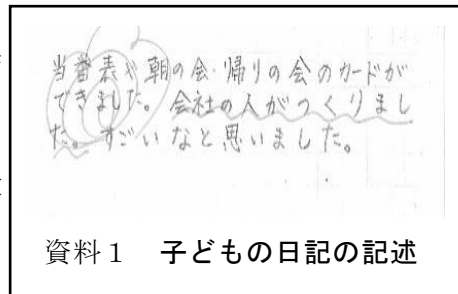 当番表や朝の会・帰りの会のカードが
できました。会社の人がつくりまし
た。すごいなと思いました。
資料1 子どもの日記の記述